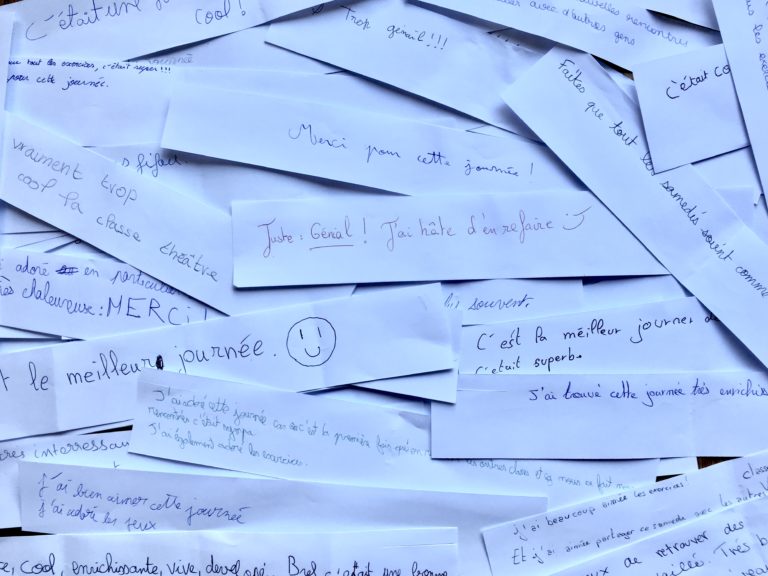 C'était une
cool !
tout les exercices, c'était super!!!
pour cette journée.
Trop génial!!!
nouvelles rencontres
avec d'autres gens
c'était co
Faites que tout les samedis soient comme
Merci pour cette journée !
vraiment trop
cool la classe théâtre
Juste : Génial ! J'ai hâte d'en refaire :)
adoré en particulier
chaleureuse : MERCI !
souvent.
C'est la méilleur journer d
c'était superbe
t le meilleur journée.
J'ai trouvé cette journée très enrichis
J'ai adoré cette journée car c'est la première fois qu'on
rencontrés c'était sympa
J'ai également adoré les exercices.
res interressau
j'ai bien aimer cette journée
j'ai adoré les jeux
j'ai beaucoup aimée les exercices!
Et j'ai aimée partager ce samedi avec les autres
classe
de retrouver des
Très b
e, cool, enrichissante, vive, dévelopé.. Bref c'était une bonne